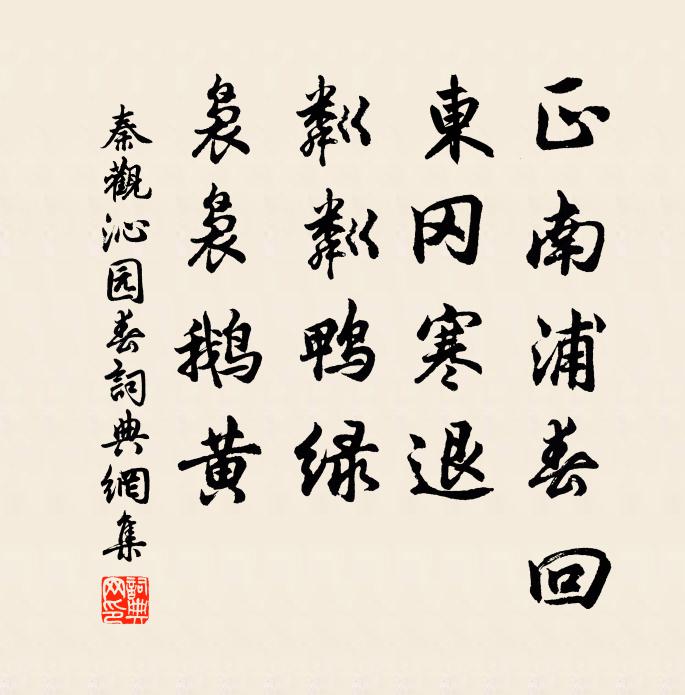 正南浦春回
東冈寒退
粼粼鸭绿
袅袅鹅黄
秦觀沁园春詞典網集
詞典网印